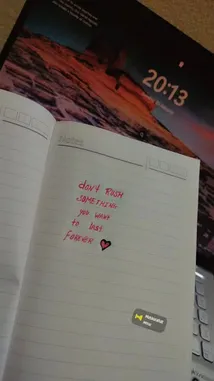 20:13
Notes
don't RUSH
SOMETHING
you want
to last
FOREVER